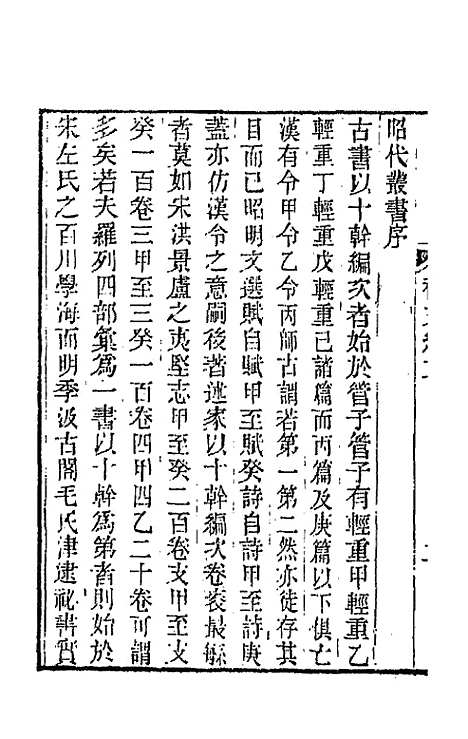 昭代叢書序
古書以十幹編次者始於管子管子有輕重甲輕重乙
輕重丁輕重戊輕重已諸篇而丙篇及庚篇以下俱亡
漢有令甲令乙令丙師古謂若第一第二然亦徒存其
目而已昭明文選賦自賦甲至賦癸詩自詩甲至詩庚
蓋亦仿漢令之意嗣後著述家以十幹編次卷袠最緐
者莫如宋洪景盧之夷堅志甲至癸二百卷支甲至支
癸一百卷三甲至三癸一百卷四甲四乙二十卷可謂
多矣若夫羅列四部彙爲一書以十幹爲第者則始於
宋左氏之百川學海而明季汲古閣毛氏津逮祕書實